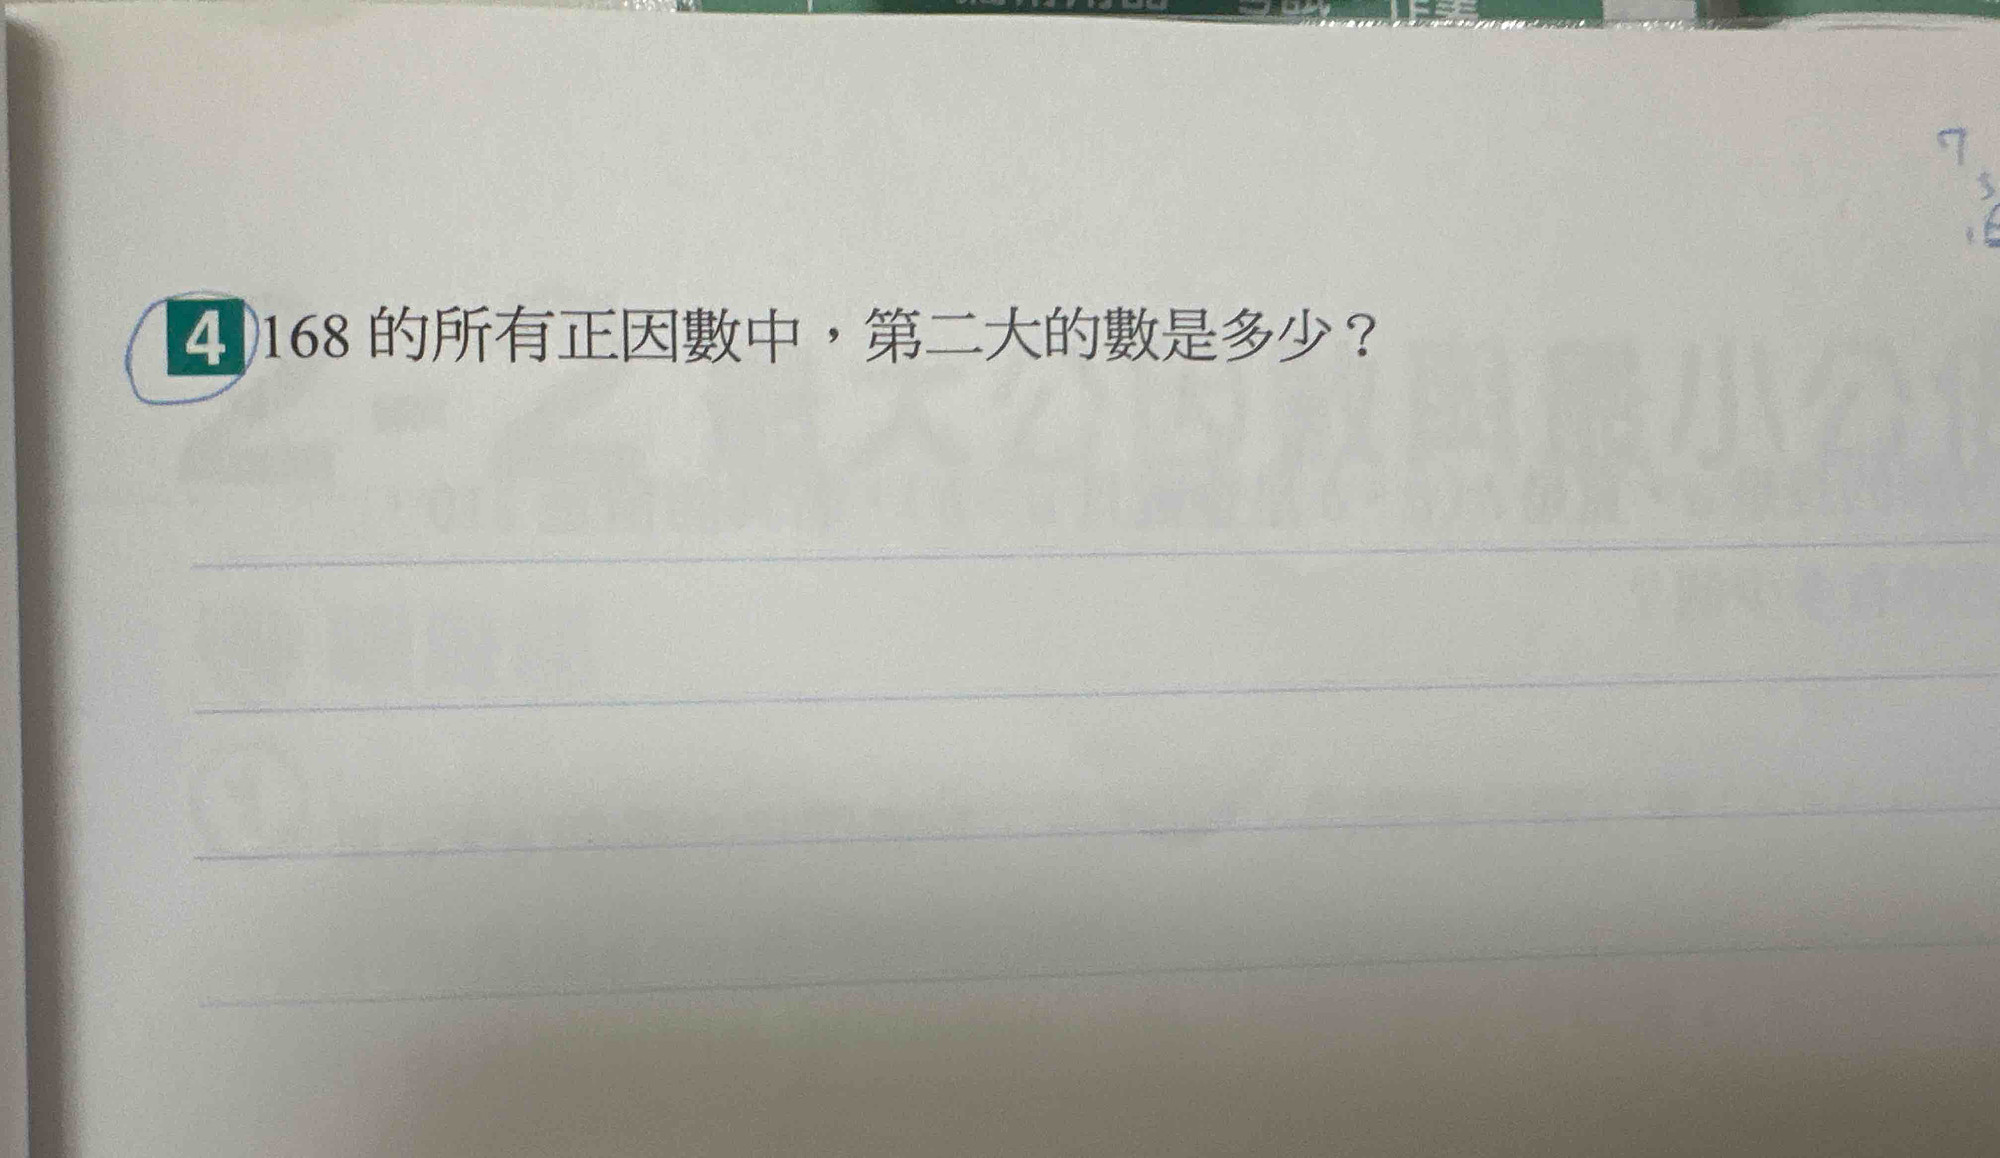 7
4 168 的所有正因數中，第二大的數是多少？